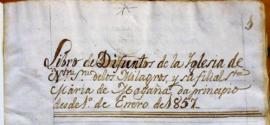 Libro de Difuntos de la Iglesia de
Ntra. Sra. de los Milagros, y su filial Sta.
Maria de Magaña, da principio
desde 1º de Enero de 1857.